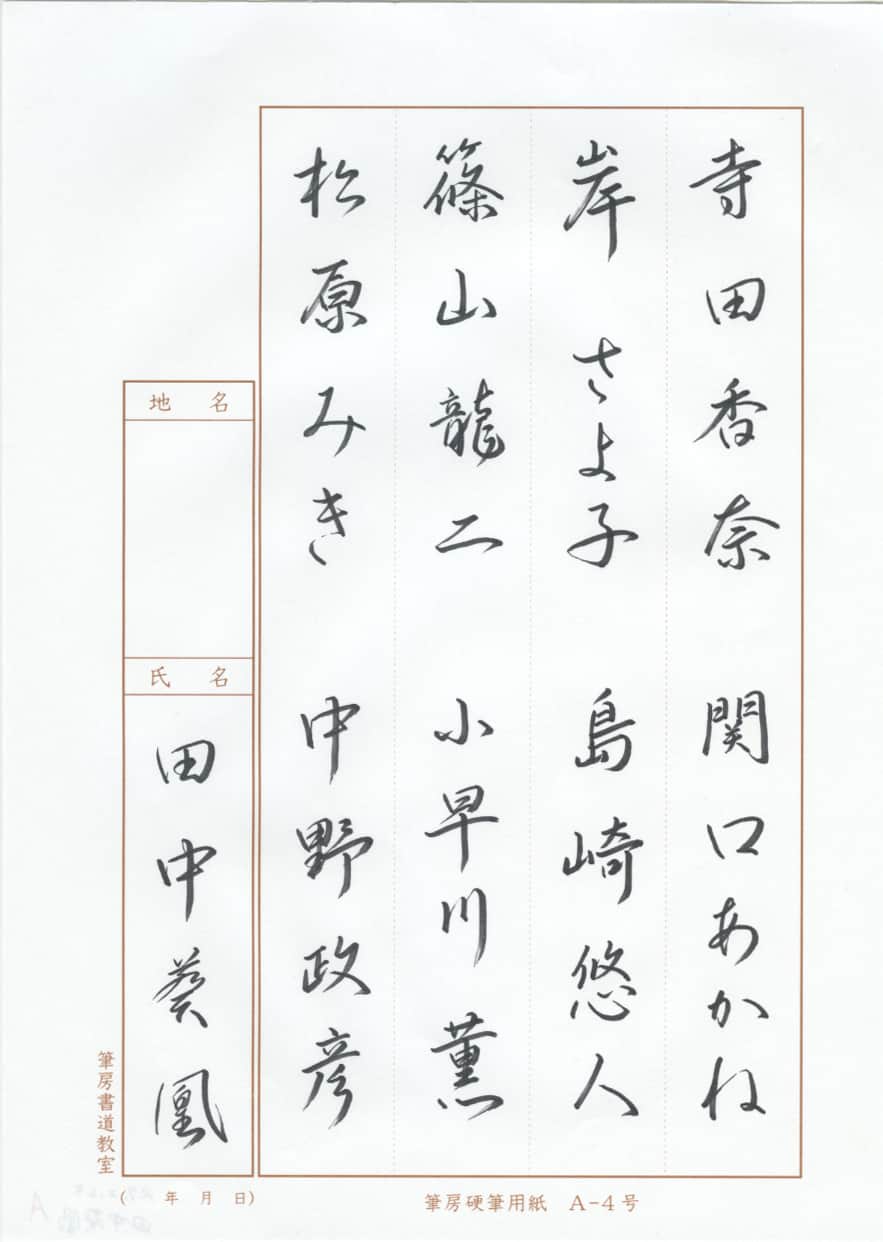 寺田香奈　関口あかね
岸　さよ子　島崎悠人
篠山龍二　小早川　薫
松原みき　中野政彦
地名
氏名
田中葵凰
筆房書道教室
(　年　月　日)
筆房硬筆用紙　A-4号